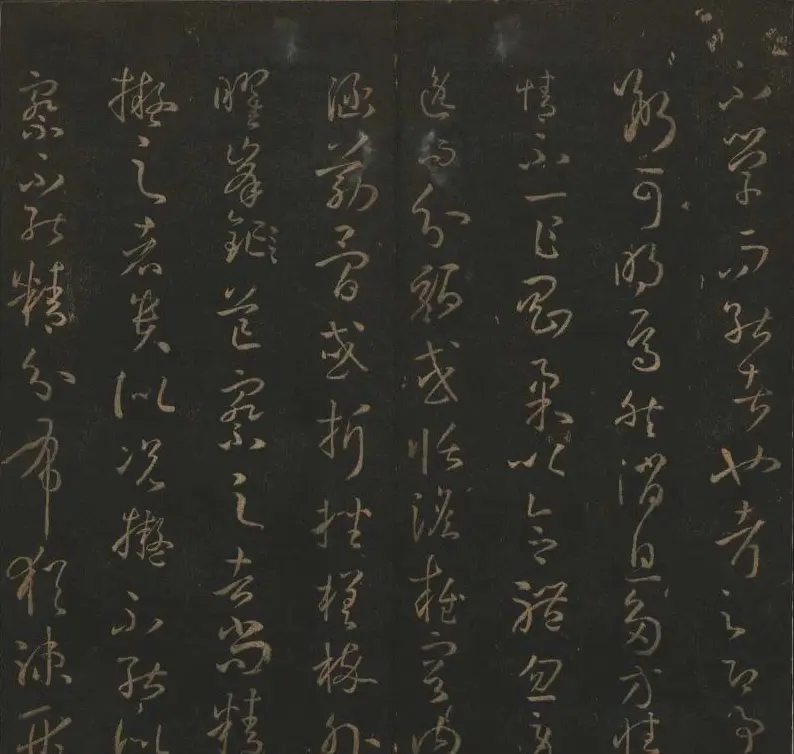 不學而能者也考之即事
斷可明焉然消息多方性
情不一乍剛柔以合體忽勞
逸而分驅或恬憺雍容內
涵筋骨或折挫槎枿外
曜峯鋩芒察之者尚精
擬之者貴似況擬不能似
察不能精分布猶疎形